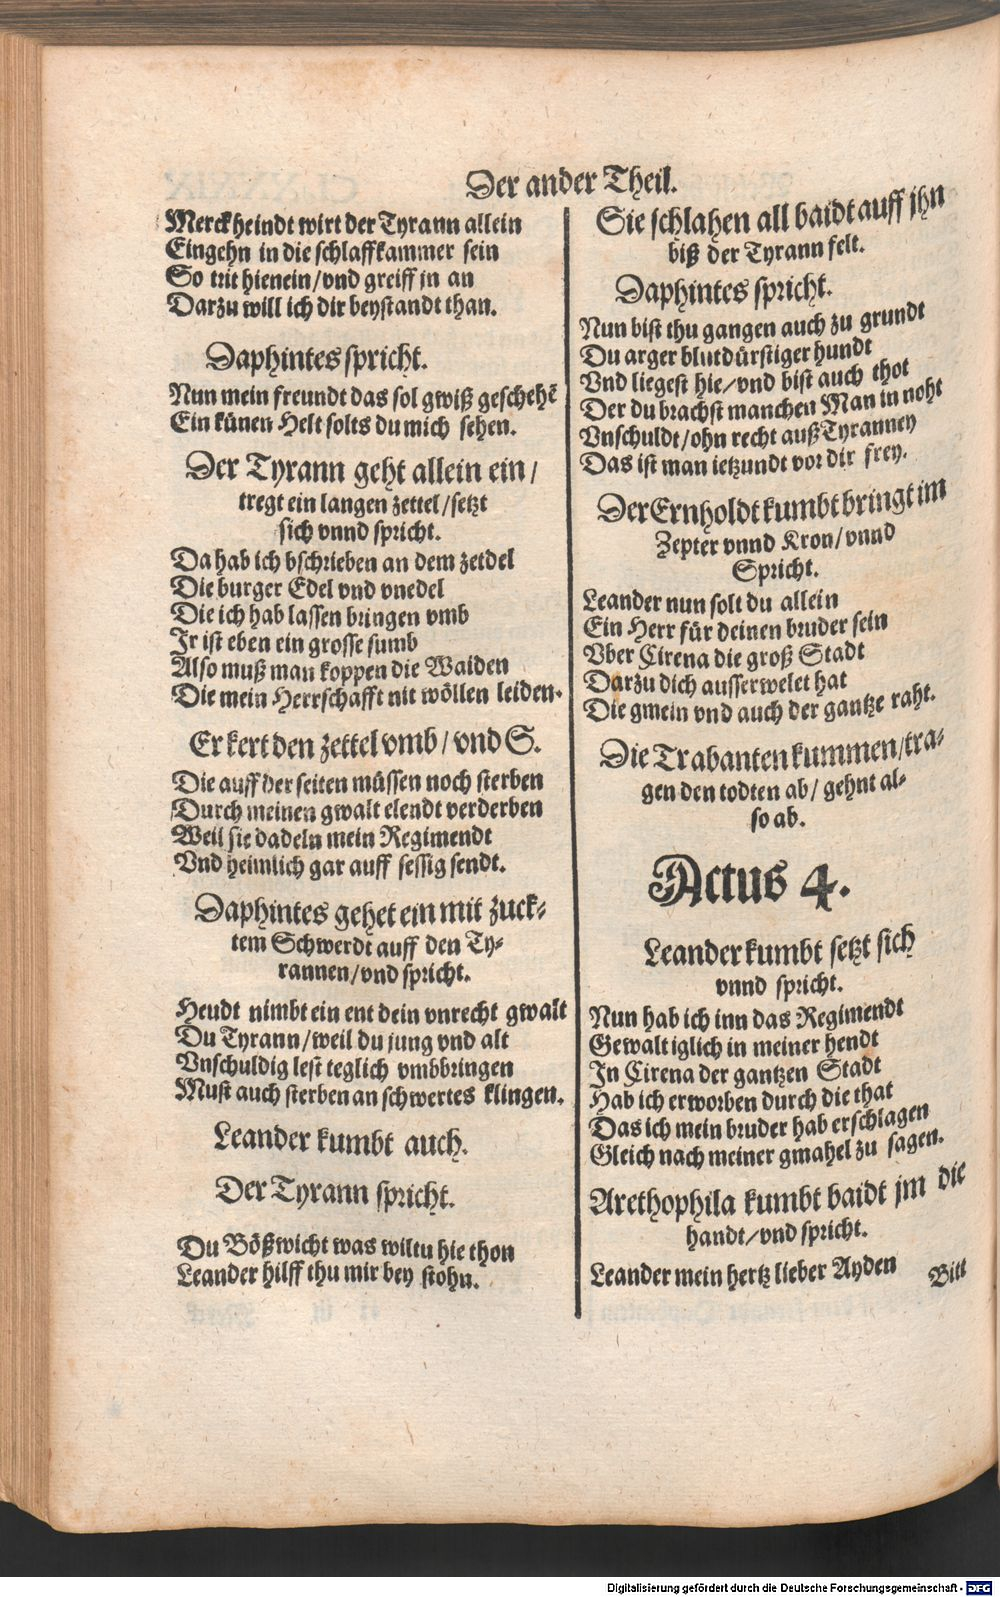 Der ander Theil.
Merck heindt wirt der Tyrann allein
Eingehn in die schlaffkammer sein
So trit hienein/vnd greiff jn an
Darzu will ich dir beystandt than.
Daphintes spricht.
Nun mein freundt das sol gwiß geschehē
Ein künen Helt solts du mich sehen.
Der Tyrann geht allein ein/
tregt ein langen zettel/setzt
sich vnnd spricht.
Da hab ich bschrieben an dem zetdel
Die burger Edel vnd vnedel
Die ich hab lassen bringen vmb
Jr ist eben ein grosse sumb
Also muß man koppen die Waiden
Die mein Herrschafft nit wöllen leiden.
Er kert den zettel vmb/vnd S.
Die auff der seiten müssen noch sterben
Durch meinen gwalt elendt verderben
Weil sie dadeln mein Regimendt
Vnd heimlich gar auff sessig sendt.
Daphintes gehet ein mit zuck-
tem Schwerdt auff den Ty-
rannen/vnd spricht.
Heudt nimbt ein ent dein vnrecht gwalt
Du Tyrann/weil du jung vnd alt
Vnschuldig lest teglich vmbbringen
Must auch sterben an schwertes klingen.
Leander kumbt auch.
Der Tyrann spricht.
Du Bößwicht was wiltu hie thon
Leander hilff thu mir bey stohn.
Sie schlahen all baidt auff jhn
biß der Tyrann felt.
Daphintes spricht.
Nun bist thu gangen auch zu grundt
Du arger blutdürstiger hundt
Vnd liegest hie/vnd bist auch thot
Der du brachst manchen Man in noht
Vnschuldt/ohn recht auß Tyranney
Das ist man ietzundt vor dir frey.
Der Ernholdt kumbt bringt im
Zepter vnnd Kron/vnnd
Spricht.
Leander nun solt du allein
Ein Herr für deinen bruder sein
Vber Cirena die groß Stadt
Darzu dich ausserwelet hat
Die gmein vnd auch der gantze raht.
Die Trabanten kummen/tra-
gen den todten ab/gehnt al-
so ab.
Actus 4.
Leander kumbt setzt sich
vnnd spricht.
Nun hab ich inn das Regimendt
Gewalt iglich in meiner hendt
In Cirena der gantzen Stadt
Hab ich erworben durch die that
Das ich mein bruder hab erschlagen
Gleich nach meiner gmahel zu sagen.
Arethophila kumbt baidt jm die
handt/vnd spricht.
Leander mein hertz lieber Ayden
Bitt
Digitalisierung gefördert durch die Deutsche Forschungsgemeinschaft - DFG